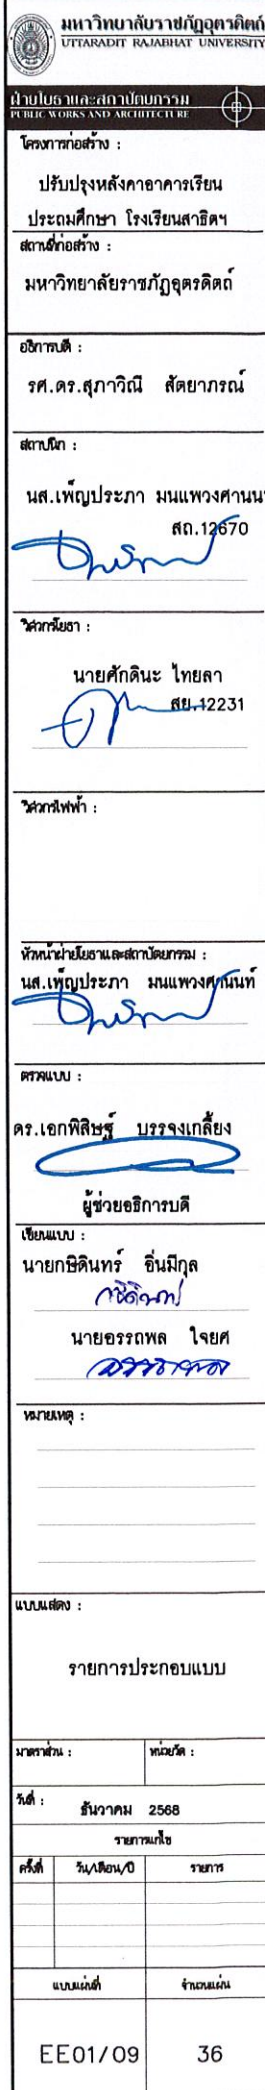 มหาวิทยาลัยราชภัฏอุตรดิตถ์
UTTARADIT RAJABHAT UNIVERSITY
ฝ่ายโยธาและสถาปัตยกรรม
PUBLIC WORKS AND ARCHITECTURE
โครงการก่อสร้าง :
ปรับปรุงหลังคาอาคารเรียน
ประถมศึกษา โรงเรียนสาธิตฯ
สถานที่ก่อสร้าง :
มหาวิทยาลัยราชภัฏอุตรดิตถ์
อธิการบดี :
รศ.ดร.สุภาวิณี สัตยาภรณ์
สถาปนิก :
นส.เพ็ญประภา มนแพวงศานนท
สถ.12670
วิศวกรโยธา :
นายศักดินะ ไทยลา
สย.12231
วิศวกรไฟฟ้า :
หัวหน้าฝ่ายโยธาและสถาปัตยกรรม :
นส.เพ็ญประภา มนแพวงศานนท์
ตรวจแบบ :
ดร.เอกพิสิษฐ์ บรรจงเกลี้ยง
ผู้ช่วยอธิการบดี
เขียนแบบ :
นายกษิดินทร์ อิ่นมีกุล
กษิดินทร์
นายอรรถพล ใจยศ
อรรถพล
หมายเหตุ :
แบบแสดง :
รายการประกอบแบบ
มาตราส่วน : หน่วยวัด :
วันที่ : ธันวาคม 2568
รายการแก้ไข
ครั้งที่ วัน/เดือน/ปี รายการ
แบบแผ่นที่ จำนวนแผ่น
EE01/09 36